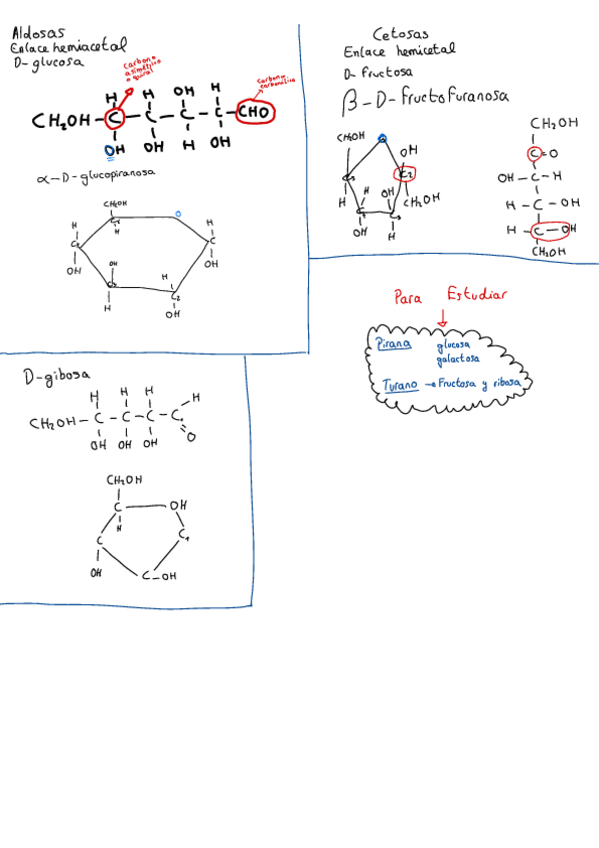 Aldosas
Enlace hemiacetal
D-glucosa
Carbono
asimétrico
o quiral
Carbono
carbonílico
H H OH H
CH₂OH-C-C-C-C-CHO
OH OH H OH
α-D-glucopiranosa
CH₂OH
O
H C H H
C C
OH OH OH
C H C₂
H OH
Cetosas
Enlace hemicetal
D-fructosa
β-D-fructofuranosa
CH₂OH O OH
C C₂
H H OH CH₂OH
C C
OH H
CH₂OH
C=O
OH-C-H
H-C-OH
H-C-OH
CH₂OH
Para Estudiar
Pirana glucosa
galactosa
Turano → Fructosa y ribosa
D-gibosa
H H H H
CH₂OH-C-C-C-C
OH OH OH O
CH₂OH
C OH
H
C C₁
OH C-OH